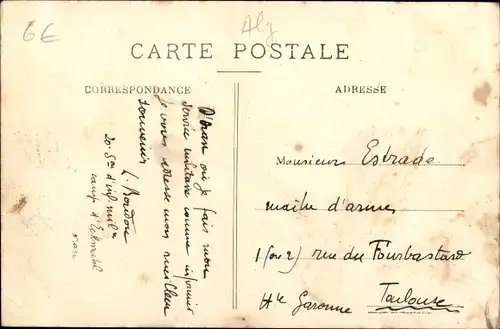 6€
Alg
CARTE POSTALE
CORRESPONDANCE
ADRESSE
D'Oran où je fais mon
service militaire comme infirmier
je vous adresse mon meilleur
souvenir
L. Boudou
20. Son d'inf. milre
camp d'Eckmühl
oran
Monsieur Estrade
maitre d'armes
1 (ou 2) rue du Fourbastard
Toulouse
Hte Garonne